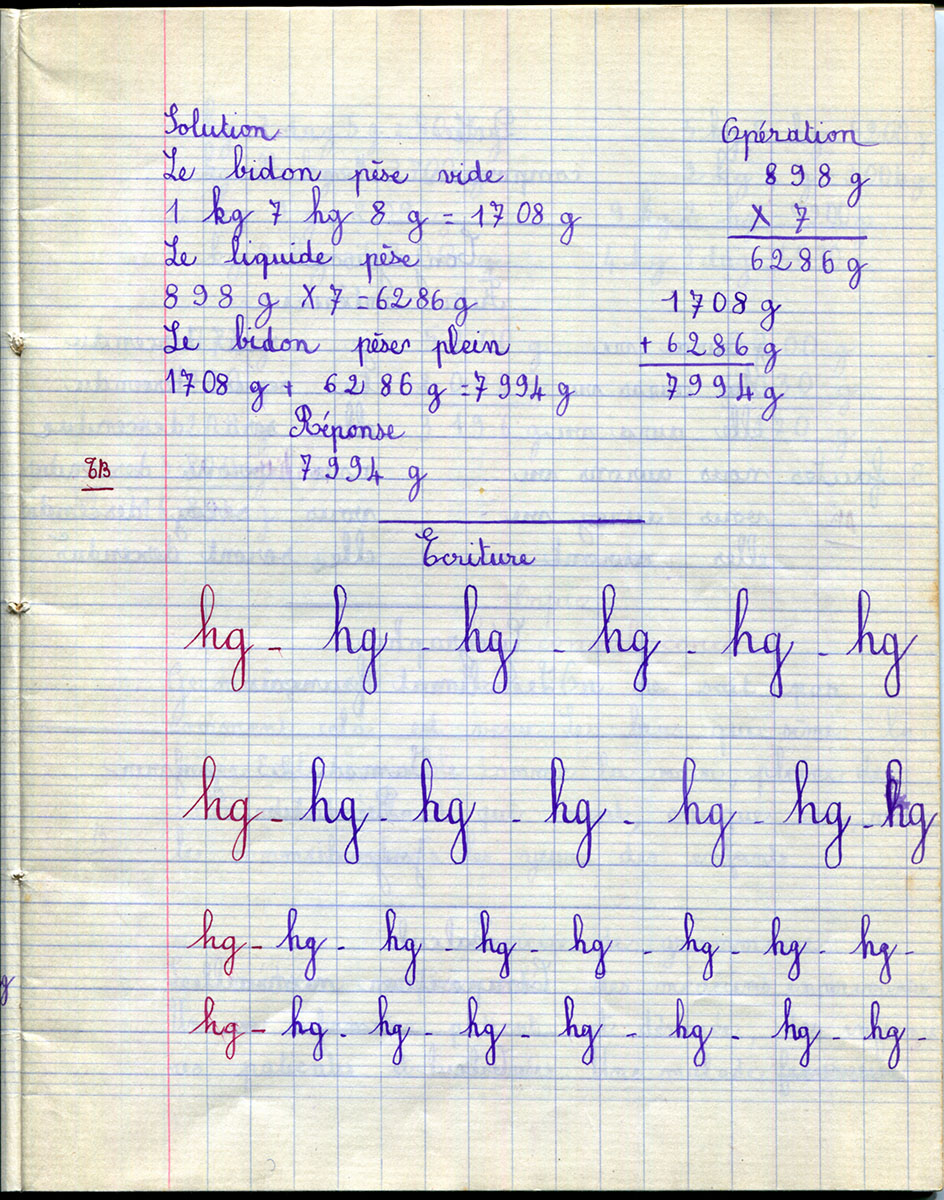 Solution
Opération
Le bidon pèse vide
898 g
1 kg 7 hg 8 g = 1708 g
X 7
Le liquide pèse
6286 g
898 g X 7 = 6286 g
1708 g
Le bidon pèser plein
+ 6286 g
1708 g + 6286 g = 7994 g
7994 g
Réponse
TB
7994 g
Ecriture
hg - hg - hg - hg - hg - hg
hg - hg - hg - hg - hg - hg - hg
hg - hg - hg - hg - hg - hg - hg - hg -
hg - hg - hg - hg - hg - hg - hg - hg -